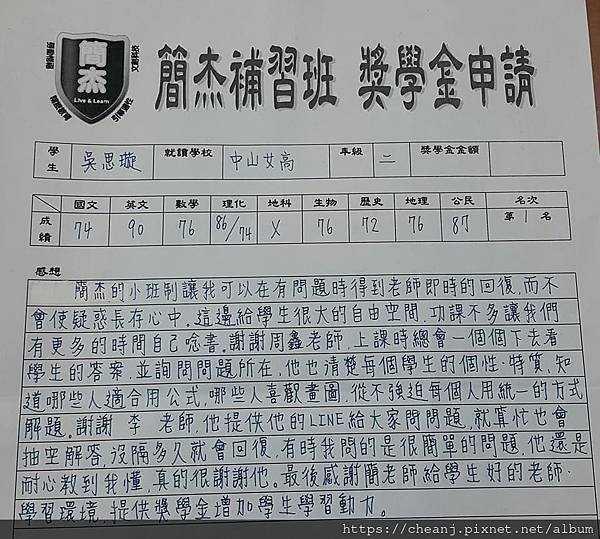 簡杰
Live & Learn
簡杰補習班 獎學金申請
學生 吳思璇 就讀學校 中山女高 年級 二 獎學金金額
成績 國文 英文 數學 理化 地科 生物 歷史 地理 公民 名次
74 90 76 86/74 X 76 72 76 87 第 1 名
感想
簡杰的小班制讓我可以在有問題時得到老師即時的回復,而不
會使疑惑長存心中。這邊給學生很大的自由空間,功課不多讓我們
有更多的時間自己唸書。謝謝周鑫老師,上課時總會一個個下去看
學生的答案,並詢問問題所在,他也清楚每個學生的個性、特質,知
道哪些人適合用公式,哪些人喜歡畫圖,從不強迫每個人用統一的方式
解題。謝謝 李 老師,他提供他的LINE給大家問問題,就算忙也會
抽空解答,沒隔多久就會回復,有時我問的是很簡單的問題,他還是
耐心教到我懂,真的很謝謝他。最後感謝簡老師給學生好的老師、
學習環境,提供獎學金增加學生學習動力。
https://cheanj.pixnet.net/album